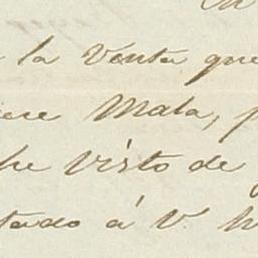 la Venta que
Mala,
he visto de
tado á V.